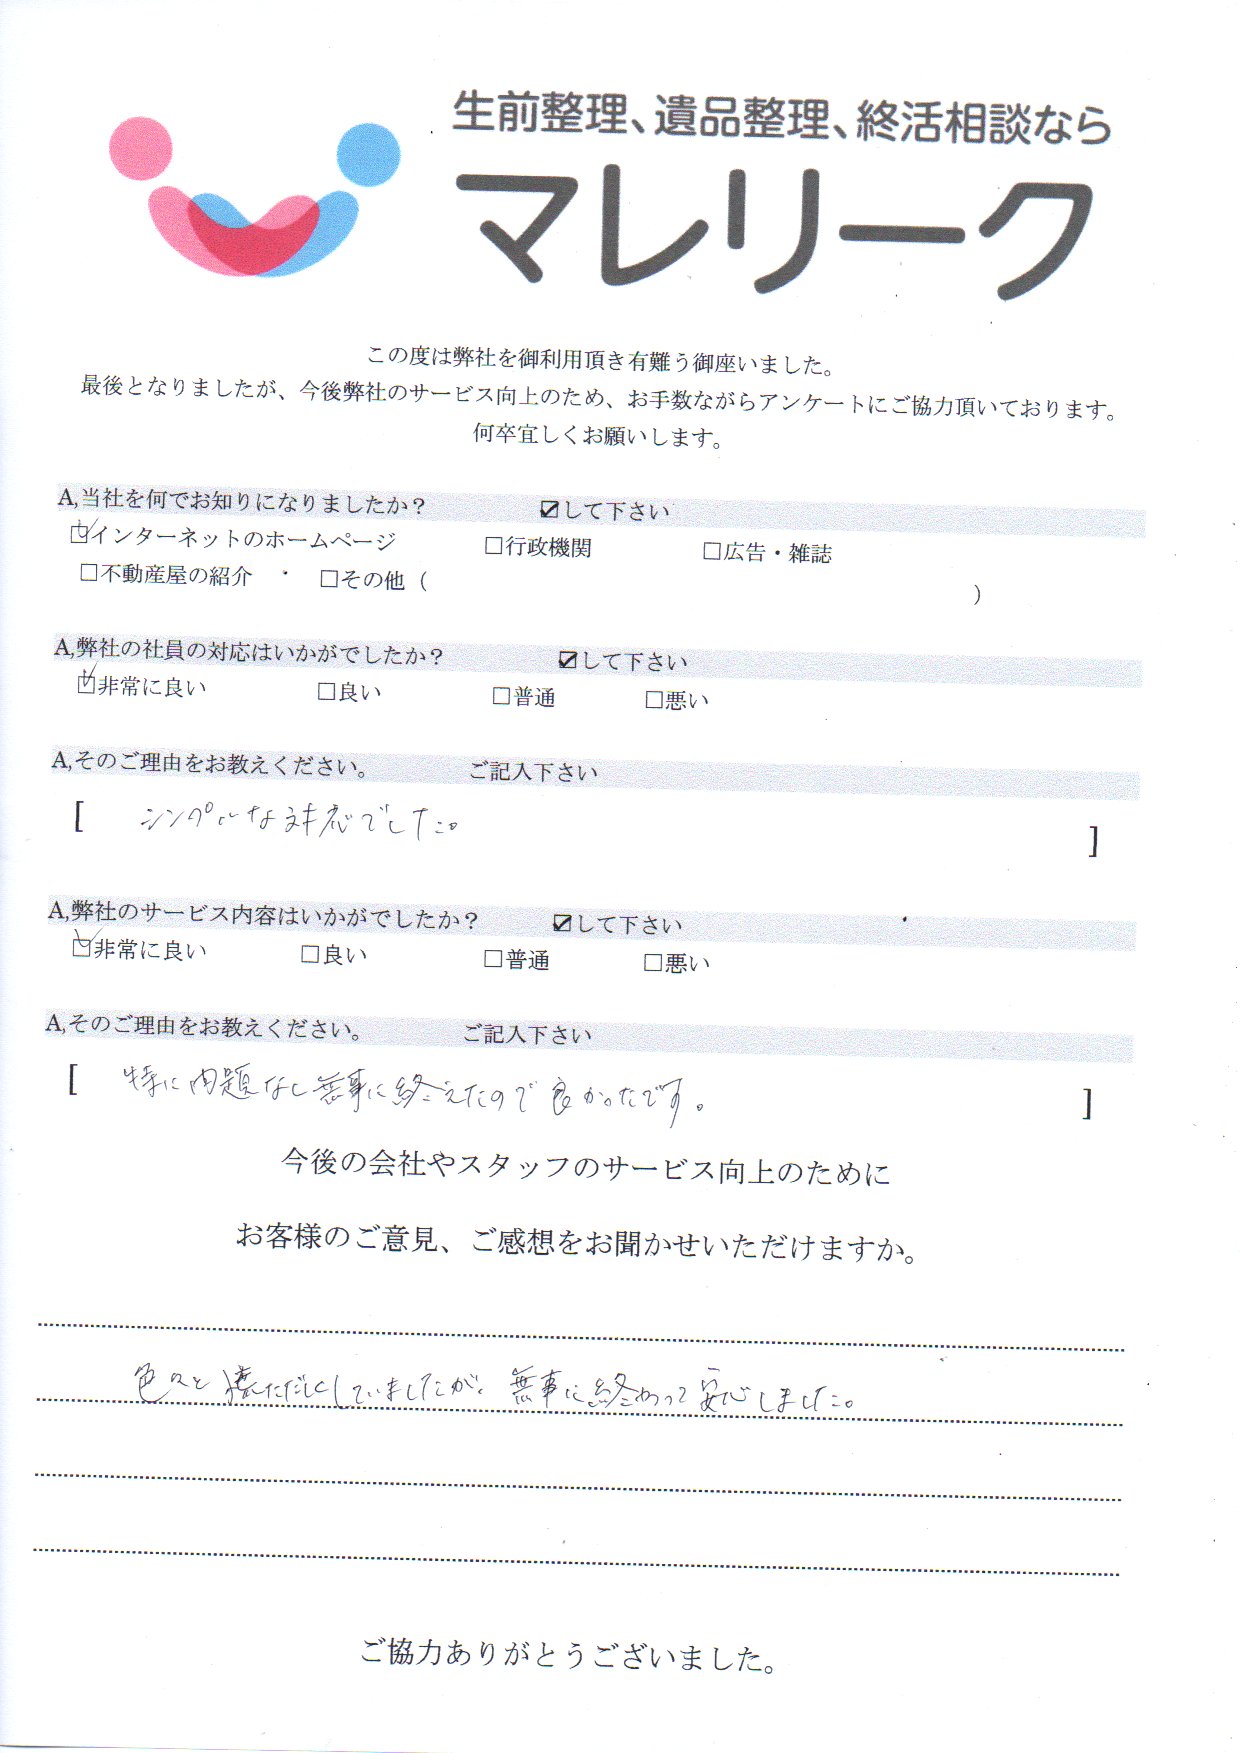 生前整理、遺品整理、終活相談なら
マレリーク
この度は弊社を御利用頂き有難う御座いました。
最後となりましたが、今後弊社のサービス向上のため、お手数ながらアンケートにご協力頂いております。
何卒宜しくお願いします。
A,当社を何でお知りになりましたか？ ☑して下さい
☑インターネットのホームページ □行政機関 □広告・雑誌
□不動産屋の紹介 □その他（ ）
A,弊社の社員の対応はいかがでしたか？ ☑して下さい
☑非常に良い □良い □普通 □悪い
A,そのご理由をお教えください。 ご記入下さい
[ シンプルな対応でした。 ]
A,弊社のサービス内容はいかがでしたか？ ☑して下さい
☑非常に良い □良い □普通 □悪い
A,そのご理由をお教えください。 ご記入下さい
[ 特に問題なし無事に終えたので良かったです。 ]
今後の会社やスタッフのサービス向上のために
お客様のご意見、ご感想をお聞かせいただけますか。
色々と していましたが、無事に終わって安心しました。
ご協力ありがとうございました。